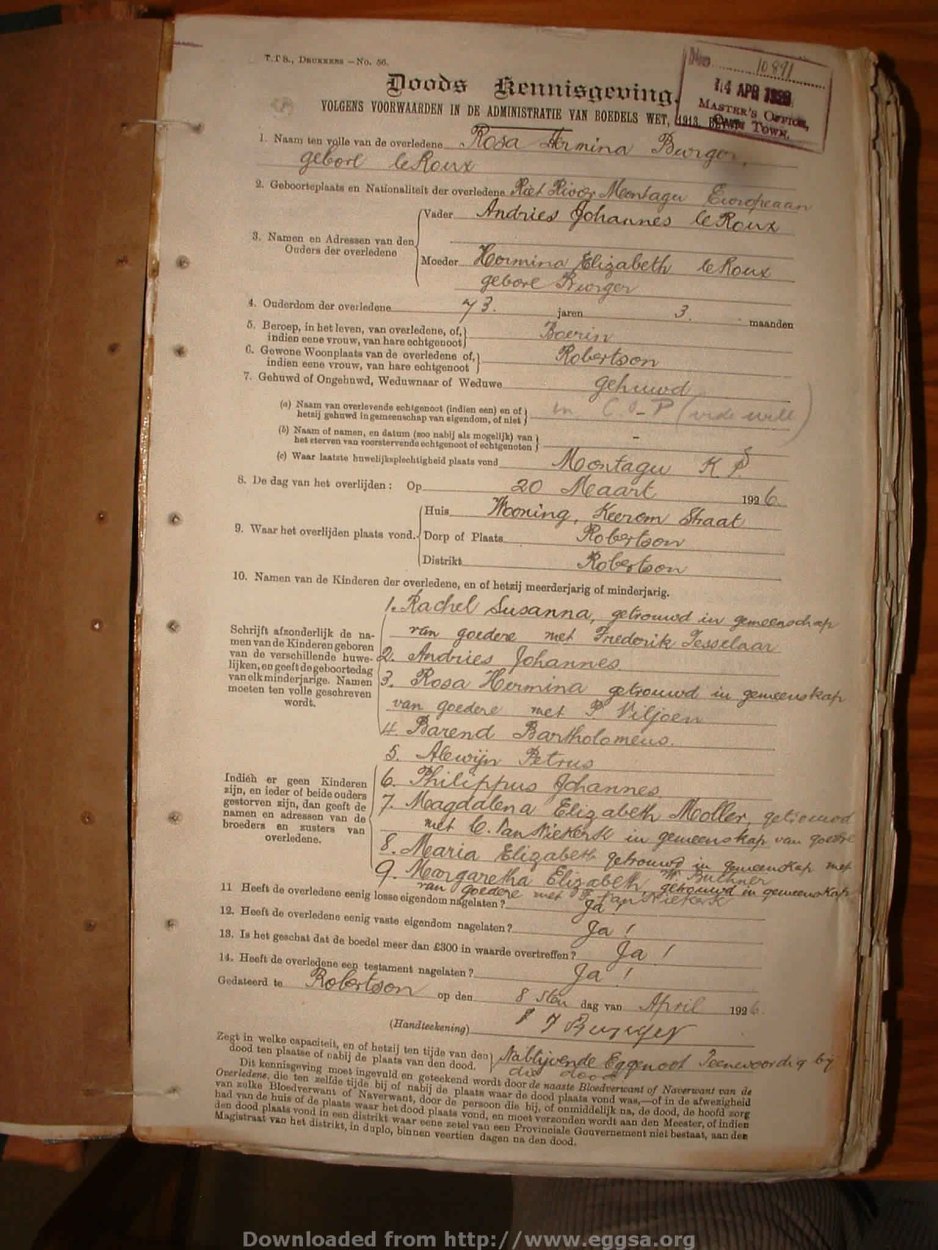 T.T S., DRUKKERS — No. 56.
No 10891
14 APR 1926
MASTER'S OFFICE,
CAPE TOWN.
Doods Kennisgeving,
VOLGENS VOORWAARDEN IN DE ADMINISTRATIE VAN BOEDELS WET, 1913.
1. Naam ten volle van de overledene Rosa Hermina Burger,
gebore le Roux
2. Geboorteplaats en Nationaliteit der overledene Riet Rivier Montagu Europeaan
3. Namen en Adressen van den Ouders der overledene
Vader Andries Johannes le Roux
Moeder Hermina Elizabeth le Roux
gebore Burger
4. Ouderdom der overledene 73. jaren 3. maanden
5. Beroep, in het leven, van overledene, of, indien eene vrouw, van hare echtgenoot Boerin
6. Gewone Woonplaats van de overledene of, indien eene vrouw, van hare echtgenoot Robertson
7. Gehuwd of Ongehuwd, Weduwnaar of Weduwe gehuwd
(a) Naam van overlevende echtgenoot (indien een) en of hetzij gehuwd in gemeenschap van eigendom, of niet in C. o - P (vide will)
(b) Naam of namen, en datum (zoo nabij als mogelijk) van het sterven van voorstervende echtgenoot of echtgenoten -
(c) Waar laatste huwelijksplechtigheid plaats vond Montagu K P.
8. De dag van het overlijden: Op 20 Maart 1926.
9. Waar het overlijden plaats vond.
Huis Wooning, Keerom Straat
Dorp of Plaats Robertson
Distrikt Robertson
10. Namen van de Kinderen der overledene, en of hetzij meerderjarig of minderjarig.
Schrijft afzonderlijk de namen van de Kinderen geboren van de verschillende huwelijken, en geeft de geboortedag van elk minderjarige. Namen moeten ten volle geschreven wordt.
1. Rachel Susanna, getrouwd in gemeenschap
van goedere met Frederik Tesselaar
2. Andries Johannes
3. Rosa Hermina getrouwd in gemeenskap
van goedere met P Viljoen
4 Barend Bartholomeus.
5. Alewijn Petrus
Indien er geen Kinderen zijn, en ieder of beide ouders gestorven zijn, dan geeft de namen en adressen van de broeders en zusters van overledene.
6. Philippus Johannes
7. Magdalena Elizabeth Moller, getrouwd
met C. van Niekerk in gemeenskap van goedre
8. Maria Elizabeth getrouwd in gemeenskap met
W. Buchner
9. Margaretha Elizabeth, getrouwd in gemeenskap
van goedere met F van Niekerk
11 Heeft de overledene eenig losse eigendom nagelaten? Ja!
12. Heeft de overledene eenig vaste eigendom nagelaten? Ja!
13. Is het geschat dat de boedel meer dan £300 in waarde overtreffen? Ja!
14. Heeft de overledene een testament nagelaten? Ja!
Gedateerd te Robertson op den 8 sten dag van April 1926
(Handteekening) P J Burger
Zegt in welke capaciteit, en of hetzij ten tijde van den dood ten plaatse of nabij de plaats van den dood. Nablijvende Eggenoot Teenwoordig bij
die dood
Dit kennisgeving moet ingevuld en geteekend wordt door de naaste Bloedverwant of Naverwant van de
Overledene, die ten zelfde tijde bij of nabij de plaats waar de dood plaats vond was,—of in de afwezigheid
van zulke Bloedverwant of Naverwant, door de persoon die bij, of onmiddelijk na, de dood, de hoofd zorg
had van de huis of de plaats waar het dood plaats vond, en moet verzonden wordt aan den Meester, of indien
den dood plaats vond in een distrikt waar eene zetel van een Provinciale Gouvernement niet bestaat, aan den
Magistraat van het distrikt, in duplo, binnen veertien dagen na den dood.
Downloaded from http://www.eggsa.org